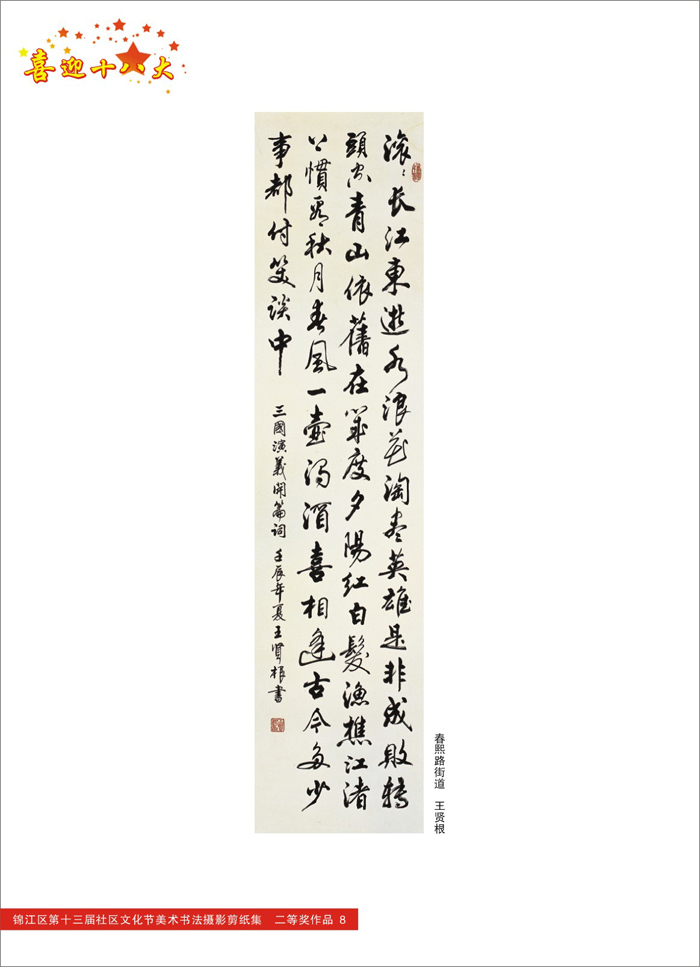 喜迎十八大
滚〻长江東逝水浪花淘尽英雄是非成败转
頭空青山依舊在幾度夕陽红白髮渔樵江渚
上慣看秋月春風一壺浊酒喜相逢古今多少
事都付笑谈中
三國演義開篇词 壬辰年夏王贤根書
春熙路街道 王贤根
锦江区第十三届社区文化节美术书法摄影剪纸集 二等奖作品 8